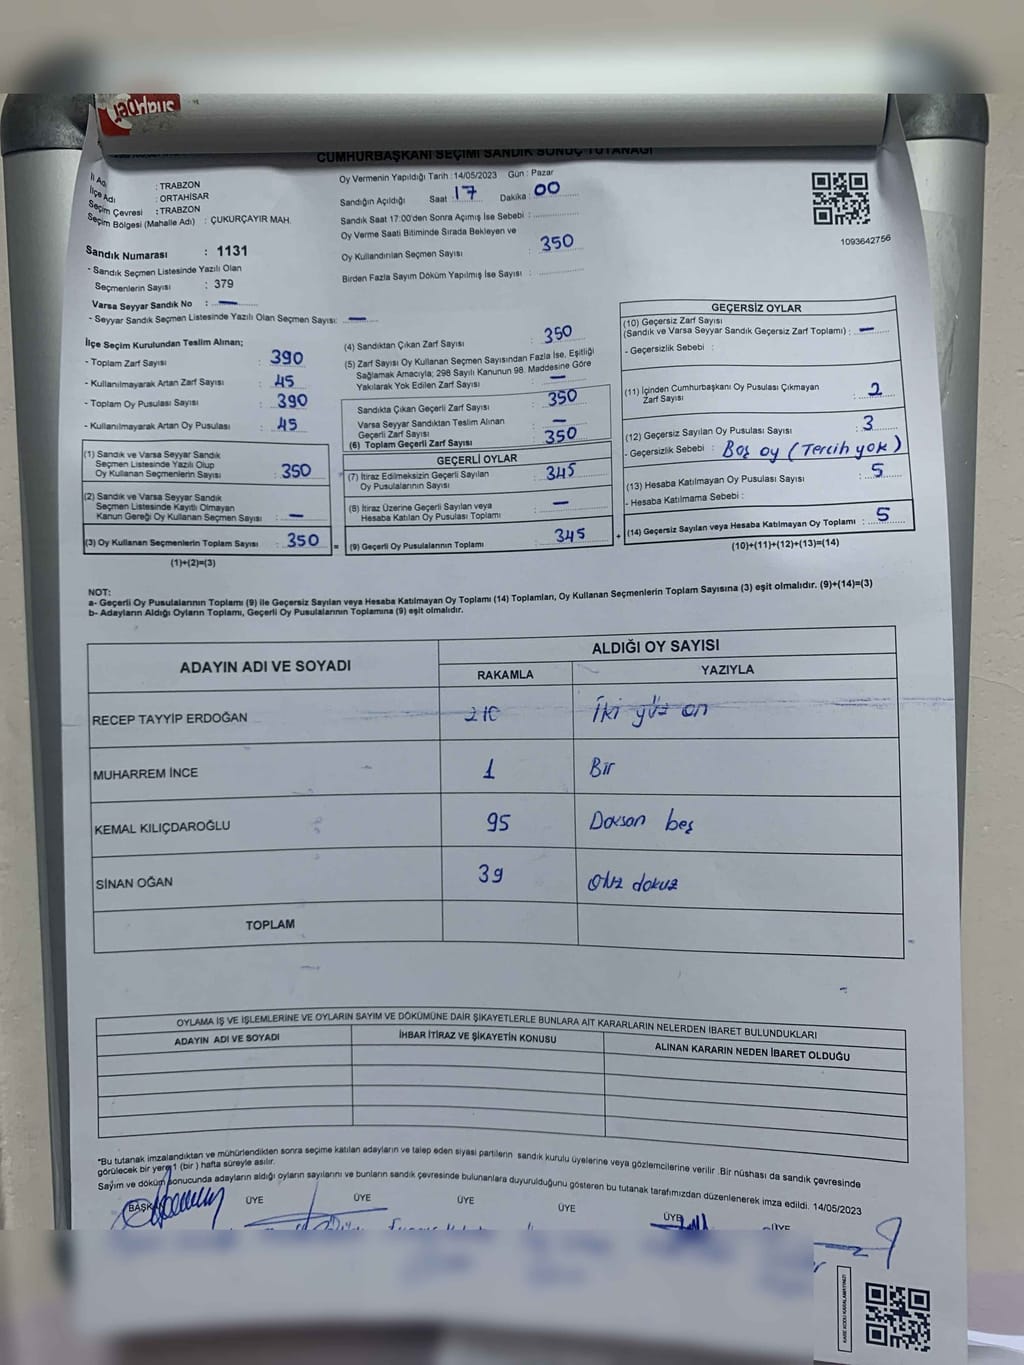 snaphoɹ
CUMHURBAŞKANI SEÇİMİ SANDIK SONUÇ TUTANAĞI
İl Adı : TRABZON
İlçe Adı : ORTAHİSAR
Seçim Çevresi : TRABZON
Seçim Bölgesi (Mahalle Adı) : ÇUKURÇAYIR MAH.
Sandık Numarası : 1131
- Sandık Seçmen Listesinde Yazılı Olan
Seçmenlerin Sayısı : 379
Varsa Seyyar Sandık No : —
- Seyyar Sandık Seçmen Listesinde Yazılı Olan Seçmen Sayısı: —
Oy Vermenin Yapıldığı Tarih : 14/05/2023 Gün : Pazar
Sandığın Açıldığı Saat : 17 Dakika : 00
Sandık Saat 17:00'den Sonra Açımış İse Sebebi :
Oy Verme Saati Bitiminde Sırada Bekleyen ve
Oy Kullandırılan Seçmen Sayısı : 350
Birden Fazla Sayım Döküm Yapılmış İse Sayısı :
1093642756
İlçe Seçim Kurulundan Teslim Alınan;
- Toplam Zarf Sayısı : 390
- Kullanılmayarak Artan Zarf Sayısı : 45
- Toplam Oy Pusulası Sayısı : 390
- Kullanılmayarak Artan Oy Pusulası : 45
(1) Sandık ve Varsa Seyyar Sandık
Seçmen Listesinde Yazılı Olup
Oy Kullanan Seçmenlerin Sayısı : 350
(2) Sandık ve Varsa Seyyar Sandık
Seçmen Listesinde Kayıtlı Olmayan
Kanun Gereği Oy Kullanan Seçmen Sayısı : —
(3) Oy Kullanan Seçmenlerin Toplam Sayısı : 350
(1)+(2)=(3)
(4) Sandıktan Çıkan Zarf Sayısı : 350
(5) Zarf Sayısı Oy Kullanan Seçmen Sayısından Fazla İse, Eşitliği
Sağlamak Amacıyla; 298 Sayılı Kanunun 98. Maddesine Göre
Yakılarak Yok Edilen Zarf Sayısı : —
Sandıkta Çıkan Geçerli Zarf Sayısı : 350
Varsa Seyyar Sandıktan Teslim Alınan
Geçerli Zarf Sayısı : —
(6) Toplam Geçerli Zarf Sayısı : 350
GEÇERLİ OYLAR
(7) İtiraz Edilmeksizin Geçerli Sayılan
Oy Pusulalarının Sayısı : 345
(8) İtiraz Üzerine Geçerli Sayılan veya
Hesaba Katılan Oy Pusulası Toplamı : —
= (9) Geçerli Oy Pusulalarının Toplamı : 345
GEÇERSİZ OYLAR
(10) Geçersiz Zarf Sayısı
(Sandık ve Varsa Seyyar Sandık Geçersiz Zarf Toplamı) : —
- Geçersizlik Sebebi :
(11) İçinden Cumhurbaşkanı Oy Pusulası Çıkmayan
Zarf Sayısı : 2
(12) Geçersiz Sayılan Oy Pusulası Sayısı : 3
- Geçersizlik Sebebi : Boş oy (Tercih yok)
(13) Hesaba Katılmayan Oy Pusulası Sayısı : 5
- Hesaba Katılmama Sebebi :
+ (14) Geçersiz Sayılan veya Hesaba Katılmayan Oy Toplamı : 5
(10)+(11)+(12)+(13)=(14)
NOT:
a- Geçerli Oy Pusulalarının Toplamı (9) ile Geçersiz Sayılan veya Hesaba Katılmayan Oy Toplamı (14) Toplamları, Oy Kullanan Seçmenlerin Toplam Sayısına (3) eşit olmalıdır. (9)+(14)=(3)
b- Adayların Aldığı Oyların Toplamı, Geçerli Oy Pusulalarının Toplamına (9) eşit olmalıdır.
ADAYIN ADI VE SOYADI
ALDIĞI OY SAYISI
RAKAMLA YAZIYLA
RECEP TAYYİP ERDOĞAN 210 İki yüz on
MUHARREM İNCE 1 Bir
KEMAL KILIÇDAROĞLU 95 Doksan beş
SİNAN OĞAN 39 Otuz dokuz
TOPLAM
OYLAMA İŞ VE İŞLEMLERİNE VE OYLARIN SAYIM VE DÖKÜMÜNE DAİR ŞİKAYETLERLE BUNLARA AİT KARARLARIN NELERDEN İBARET BULUNDUKLARI
ADAYIN ADI VE SOYADI İHBAR İTİRAZ VE ŞİKAYETİN KONUSU ALINAN KARARIN NEDEN İBARET OLDUĞU
*Bu tutanak imzalandıktan ve mühürlendikten sonra seçime katılan adayların ve talep eden siyasi partilerin sandık kurulu üyelerine veya gözlemcilerine verilir .Bir nüshası da sandık çevresinde
görülecek bir yere 1 (bir ) hafta süreyle asılır.
Sayım ve döküm sonucunda adayların aldığı oyların sayılarını ve bunların sandık çevresinde bulunanlara duyurulduğunu gösteren bu tutanak tarafımızdan düzenlenerek imza edildi. 14/05/2023
BAŞKAN ÜYE ÜYE ÜYE ÜYE ÜYE ÜYE
KARE KODU KARALAMAYINIZ!